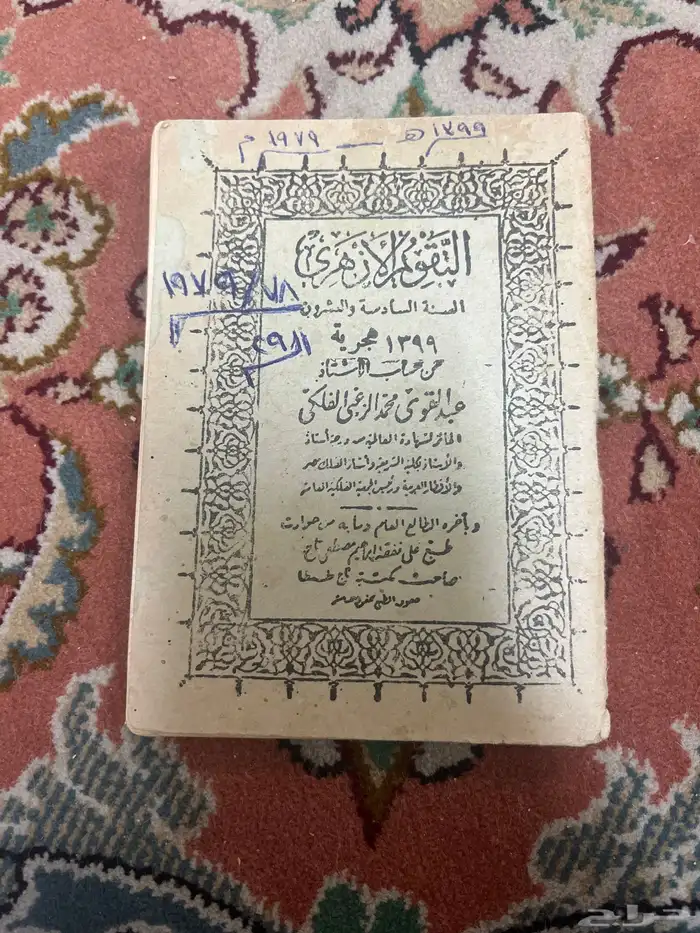 ١٣٩٩ هـ — ١٩٧٩ م
التقويم الأزهري
السنة السادسة والعشرون
١٩٧٩/٧٨
١٣٩٩ هجرية
من حساب الأستاذ
عبد القوى محمد الزغبى الفلكى
الحائز لشهادة العالمية مع درجة أستاذ
والأستاذ بكلية الشريعة وأستاذ الفلك بمصر
والأقطار العربية ورئيس الجمعية الفلكية العامة
وبآخره الطالع العام وما به من حوادث
طبع على نفقة إبراهيم مصطفى تاج
صاحب مكتبة تاج طنطا
حقوق الطبع محفوظة
حراج